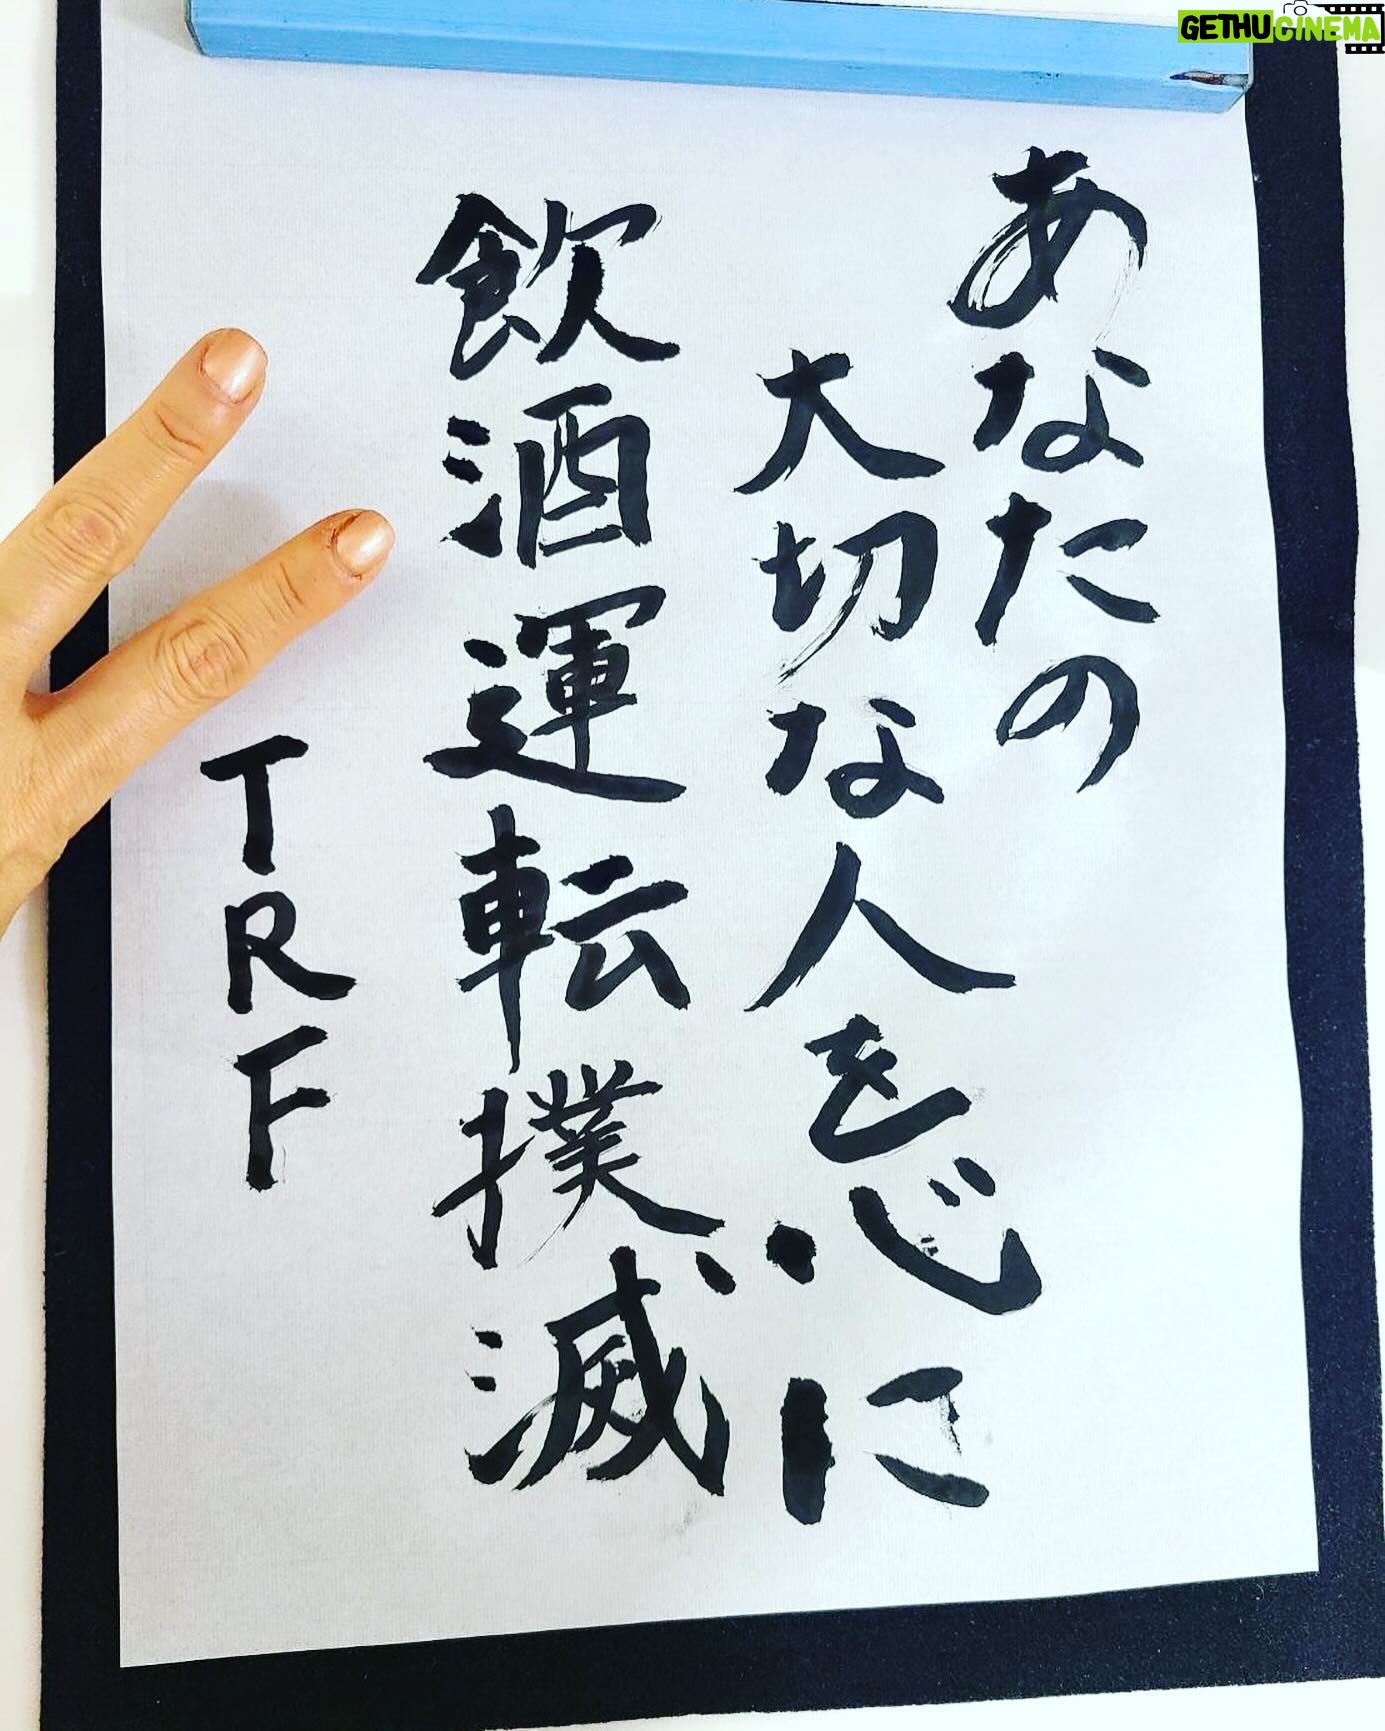 あなたの
大切な人を心に
飲酒運転撲滅
TRF
GETHUCINEMA